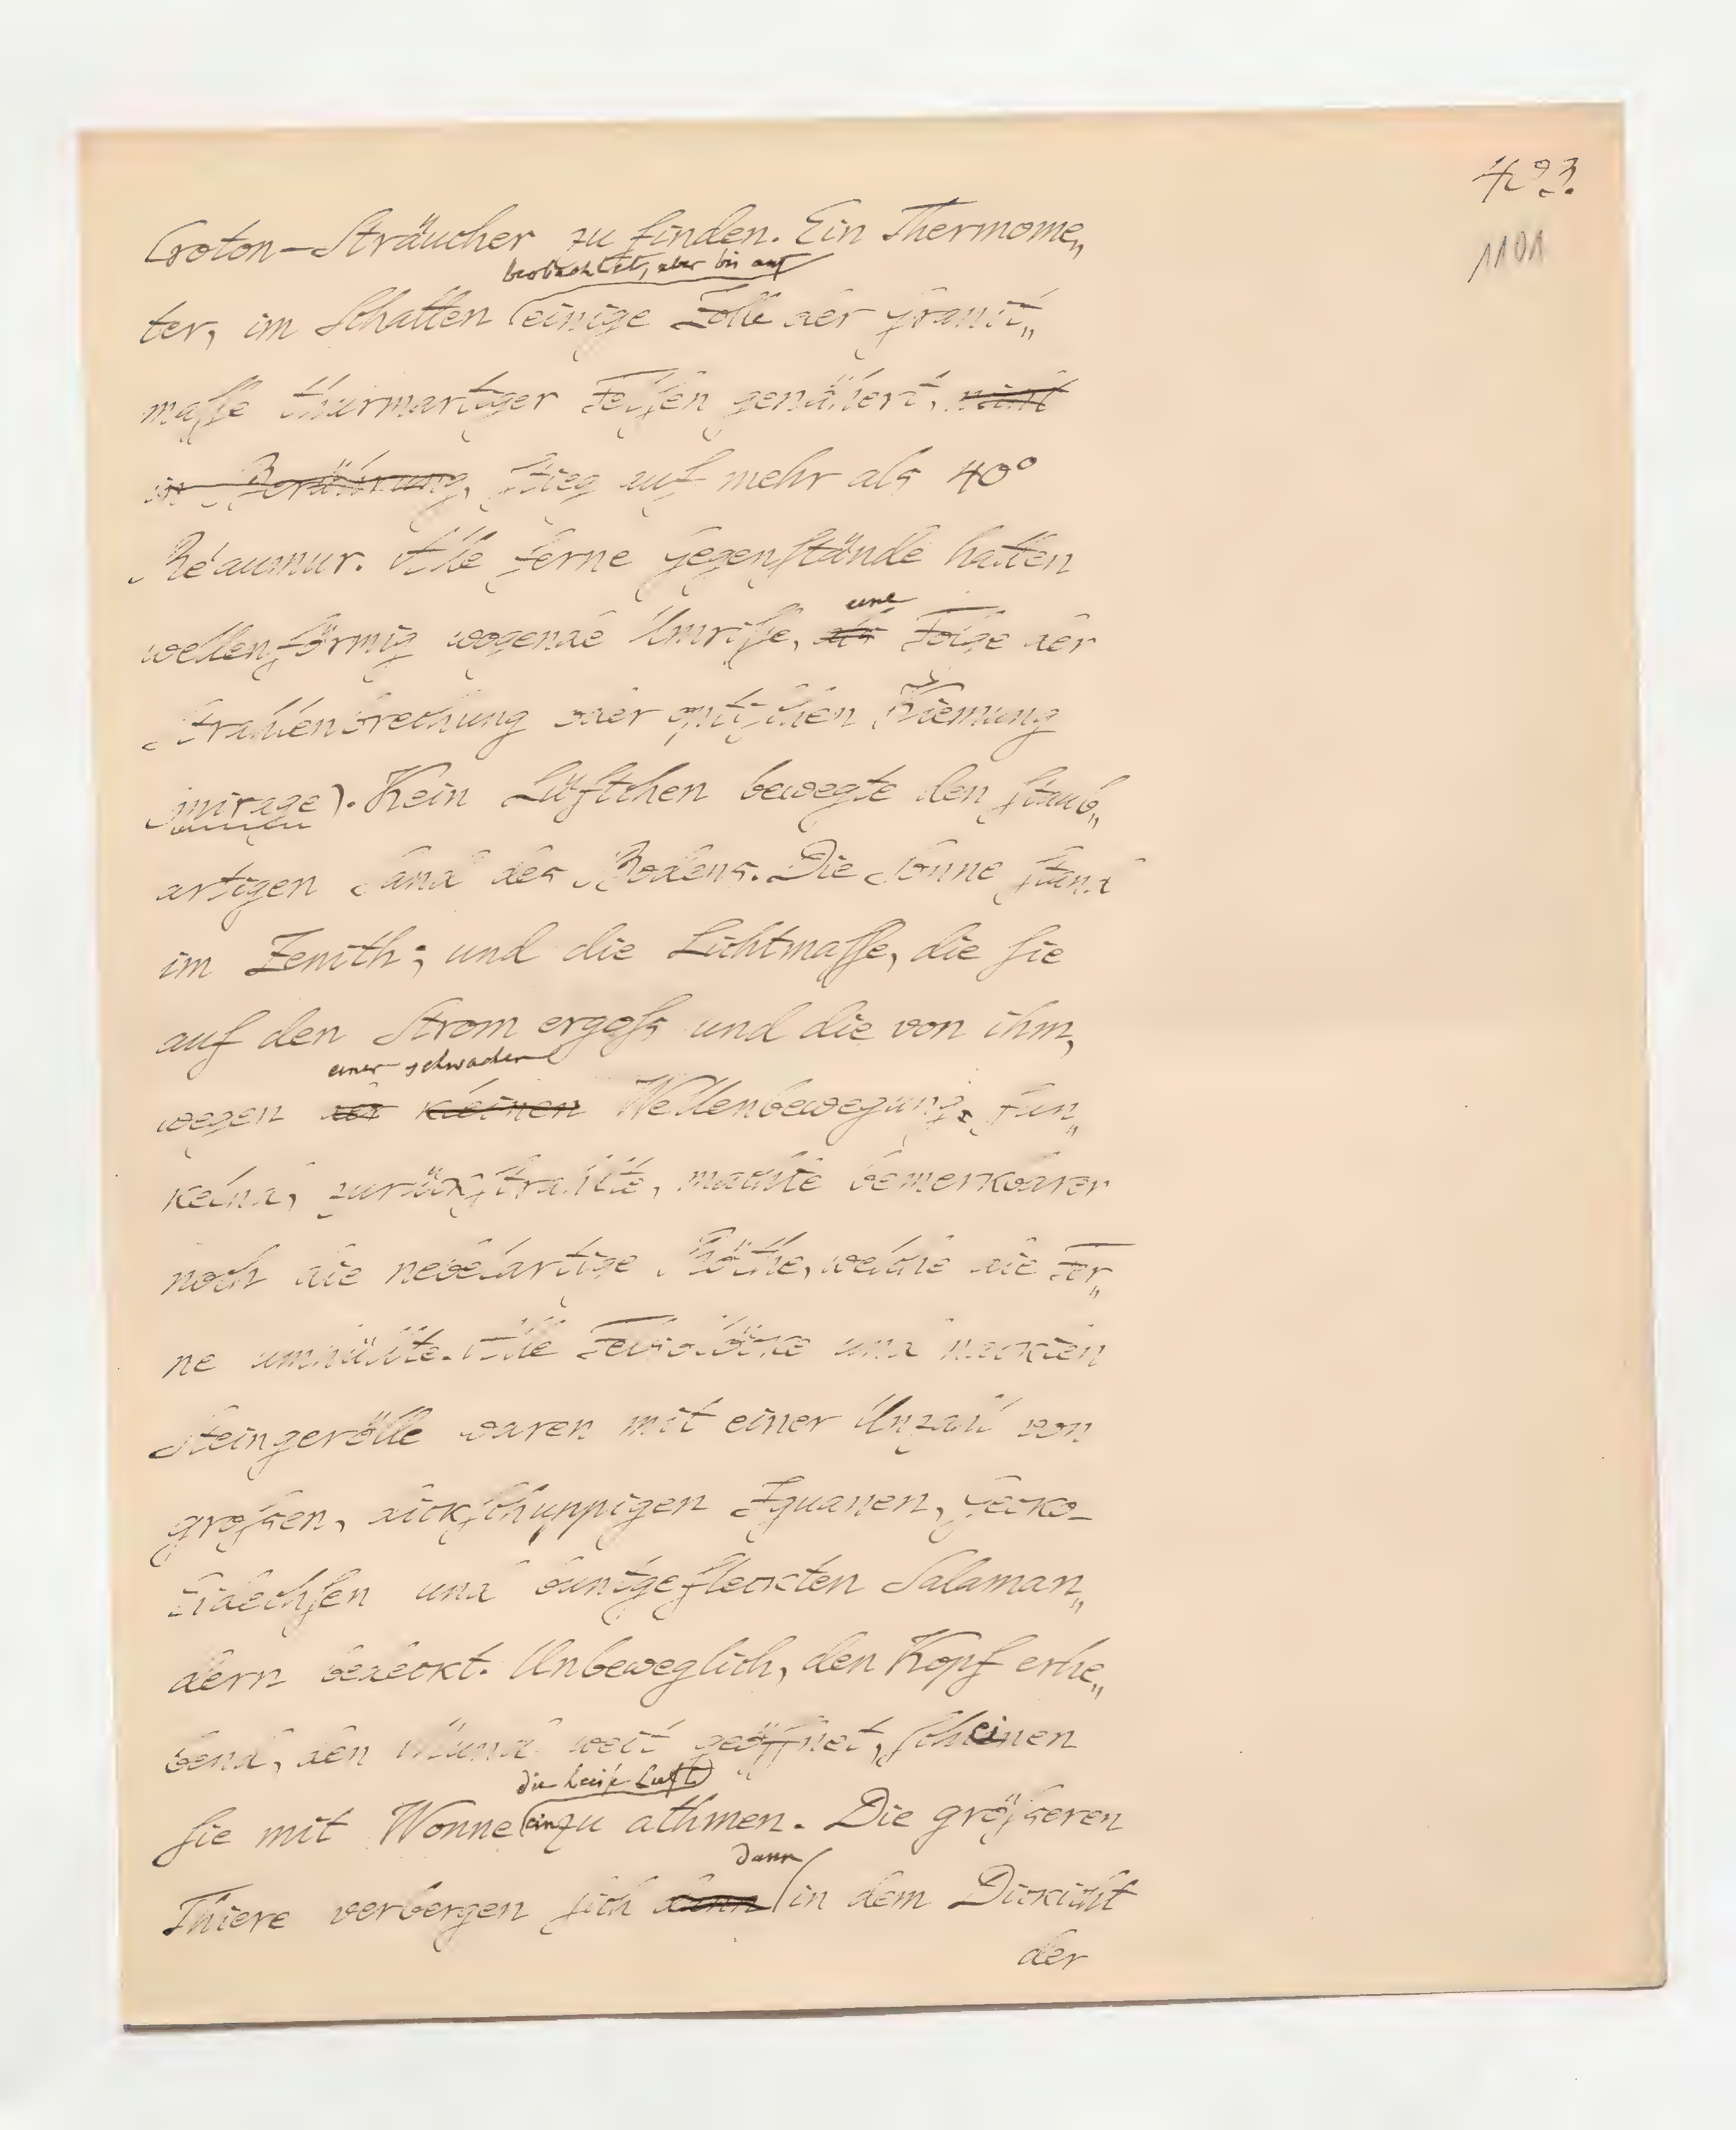 423.
1101
Croton-Sträucher zu finden. Ein Thermome„
beobachtet, aber bis auf
ter, im Schatten einige Zolle der Granit„
maſſe thurmartiger Felſen genähert, nicht
in Berührung, ſtieg auf mehr als 40°
Réaumur. Alle ferne Gegenſtände hatten
eine
wellenförmig wogende Umriſſe, als Folge der
Strahlenbrechung oder optiſchen Kiemung
(mirage). Kein Lüftchen bewegte den ſtaub„
artigen Sand des Bodens. Die Sonne ſtand
im Zenith; und die Lichtmaſſe, die ſie
auf den Strom ergoſs und die von ihm,
einer schwachen
wegen der kleinen Wellenbewegung, fun„
kelnd, zurückſtrahlte, machte bemerkbarer
noch die nebelartige Röthe, welche die Fer„
ne umhüllte. Alle Felsblöcke und nackten
Steingerölle waren mit einer Unzahl von
groſsen, dickſchuppigen Iguanen, Gecko-
Eidechſen und buntgefleckten Salaman„
dern bedeckt. Unbeweglich, den Kopf erhe„
bend, den Mund weit geöffnet, ſcheinen
die heiße Luft
ſie mit Wonne einzuathmen. Die gröſseren
dann
Thiere verbergen ſich denn in dem Dickicht
der